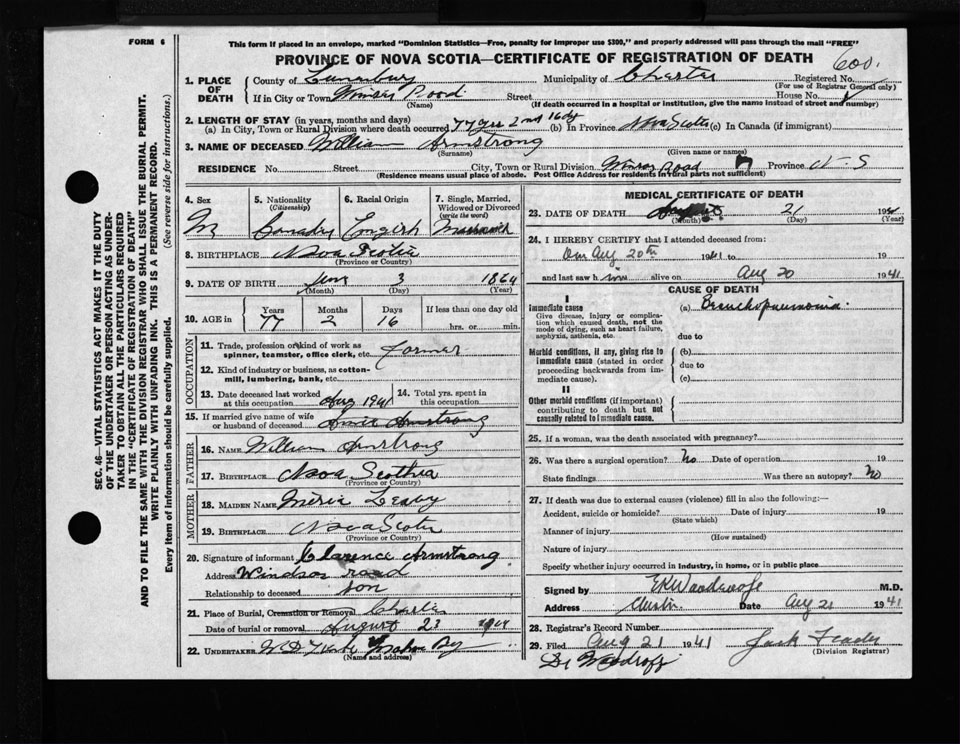 FORM 6
This form if placed in an envelope, marked "Dominion Statistics—Free, penalty for improper use $300," and properly addressed will pass through the mail "FREE"
PROVINCE OF NOVA SCOTIA—CERTIFICATE OF REGISTRATION OF DEATH
600
1. PLACE OF DEATH
County of Lunenburg Municipality of Chester Registered No.
(For use of Registrar General only)
If in City or Town Winsor Road Street House No.
(Name) (If death occurred in a hospital or institution, give the name instead of street and number)
2. LENGTH OF STAY (in years, months and days)
(a) In City, Town or Rural Division where death occurred 77 yrs 2 m 16 dy (b) In Province Nova Scotia (c) In Canada (if immigrant)
3. NAME OF DECEASED William Armstrong
(Surname) (Given name or names)
RESIDENCE No. Street City, Town or Rural Division Winsor Road Province N-S
(Residence means usual place of abode. Post Office Address for residents in rural parts not sufficient)
4. Sex
M
5. Nationality
(Citizenship)
Canada
6. Racial Origin
English
7. Single, Married, Widowed or Divorced
(write the word)
8. BIRTHPLACE Nova Scotia
(Province or Country)
9. DATE OF BIRTH 3 1864
(Month) (Day) (Year)
10. AGE in
Years Months Days If less than one day old
77 2 16 hrs. or min.
OCCUPATION
11. Trade, profession or kind of work as spinner, teamster, office clerk, etc. Farmer
12. Kind of industry or business, as cotton-mill, lumbering, bank, etc.
13. Date deceased last worked at this occupation Aug 1941
14. Total yrs. spent in this occupation
15. If married give name of wife or husband of deceased Armstrong
FATHER
16. NAME William Armstrong
17. BIRTHPLACE Nova Scothia
(Province or Country)
MOTHER
18. MAIDEN NAME
19. BIRTHPLACE Nova Scotia
(Province or Country)
20. Signature of informant Clarence Armstrong
Address Windsor road
Relationship to deceased son
21. Place of Burial, Cremation or Removal Chester
Date of burial or removal August 23 1941
22. UNDERTAKER
(Name and address)
MEDICAL CERTIFICATE OF DEATH
23. DATE OF DEATH 21 19
(Month) (Day) (Year)
24. I HEREBY CERTIFY that I attended deceased from:
On Aug 20th 1941 to 19
and last saw him alive on Aug 20 1941
CAUSE OF DEATH
I
Immediate cause
Give disease, injury or complication which caused death, not the mode of dying, such as heart failure, asphyxia, asthenia, etc.
(a) Bronchopneumonia.
due to
Morbid conditions, if any, giving rise to immediate cause (stated in order proceeding backwards from immediate cause).
(b)
due to
(c)
II
Other morbid conditions (if important) contributing to death but not causally related to immediate cause.
25. If a woman, was the death associated with pregnancy?
26. Was there a surgical operation? No Date of operation 19
State findings Was there an autopsy? No
27. If death was due to external causes (violence) fill in also the following:—
Accident, suicide or homicide? Date of injury 19
(State which)
Manner of injury
(How sustained)
Nature of injury
Specify whether injury occurred in industry, in home, or in public place
Signed by M.D.
Address Chester Date Aug 21 1941
28. Registrar's Record Number
29. Filed Aug 21 1941 Jack
(Division Registrar)
Dr
SEC. 46—VITAL STATISTICS ACT MAKES IT THE DUTY
OF THE UNDERTAKER OR PERSON ACTING AS UNDER-
TAKER TO OBTAIN ALL THE PARTICULARS REQUIRED
IN THE "CERTIFICATE OF REGISTRATION OF DEATH"
AND TO FILE THE SAME WITH THE DIVISION REGISTRAR WHO SHALL ISSUE THE BURIAL PERMIT.
WRITE PLAINLY WITH UNFADING INK. THIS IS A PERMANENT RECORD.
Every item of information should be carefully supplied. (See reverse side for instructions.)